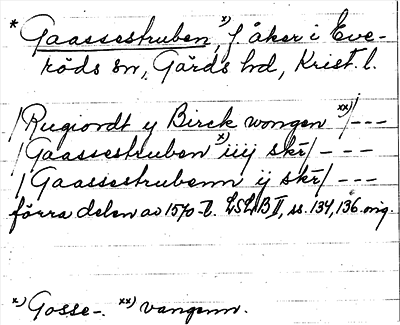 * Gaassestruben, x) f åker i Eve-
röds sn, Gärds hd, Krist. l.
/Rugiordt y Birck wongen xx)/---
/Gaassestruben x) iiij skr/ - - -
/Gaassestrubenn ij skr/ - - -
förra delen av 1570-t. LSLB II, ss. 134, 136. orig.
x) Gosse-. xx) vangenn.